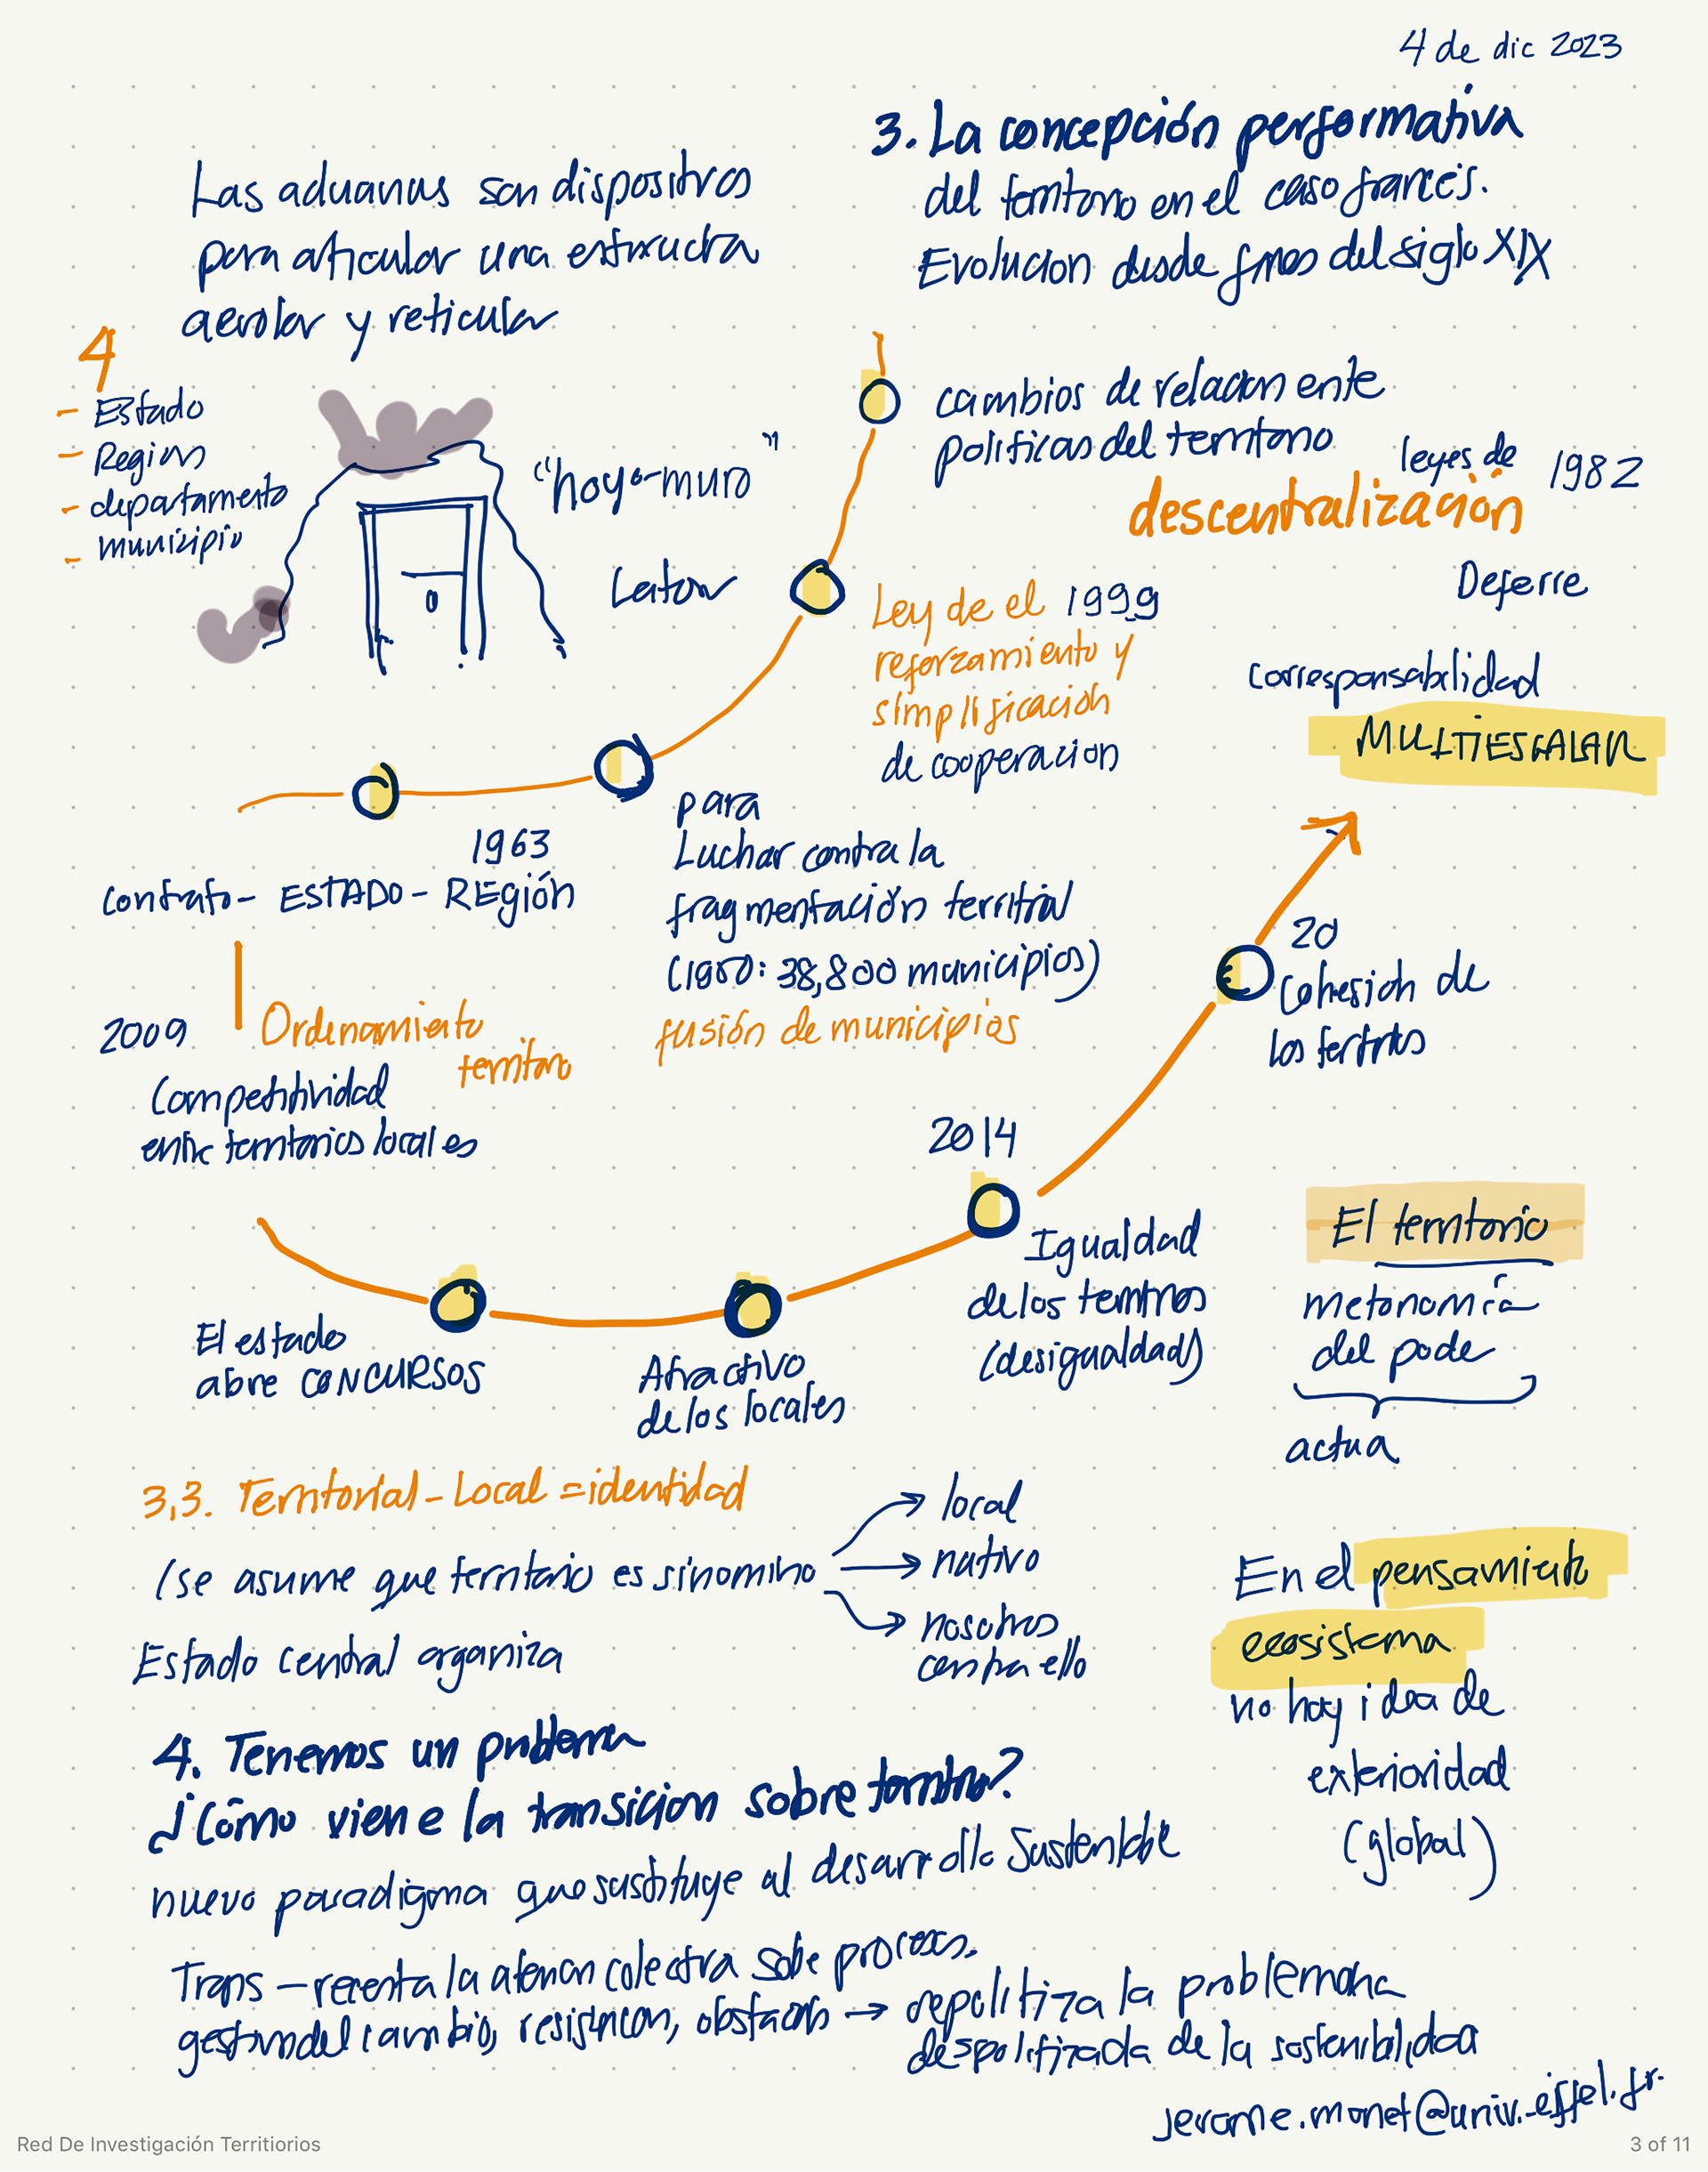 4 de dic 2023
Las aduanas son dispositivos
para articular una estructra
aerolar y reticular
4
- Estado
- Region
- departamento
- municipio
"hoyo-muro"
Latour
3. La concepción performativa
del territorio en el caso francés.
Evolucion desde fines del siglo XIX
cambios de relacion ente
politicas del territorio
leyes de 1982
descentralización
Deferre
Ley de el 1999
reforzamiento y
simplificación
de cooperacion
corresponsabilidad
MULTIESCALAR
1963
contrato - ESTADO - REgión
para
Luchar contra la
fragmentación territrial
38,800 municipios)
fusión de municipios
2009
Ordenamiento
territorio
Competitividad
entre territorios locales
20
Cohesion de
los
2014
Igualdad
de los
(desigualdad)
El estado
abre CONCURSOS
Atractivo
de los locales
El territorio
metonomía
del pode
actua
3,3. Territorial - Local = identidad
(se asume que territorio es sinomino
local
nativo
nosotros
contra ello
Estado central organiza
En el pensamiento
ecosistema
no hay idea de
exterioridad
(global)
4. Tenemos un problema
¿Cómo viene la transicion sobre
nuevo paradigma que sustituye al desarrollo Sustentable
Trans - la colectiva sobe procesos.
gestion del cambio, → repolitiza la
despolitizada de la sostenibilidad
jerome.monet@univ-eiffel.fr.
Red De Investigación Territiorios
3 of 11